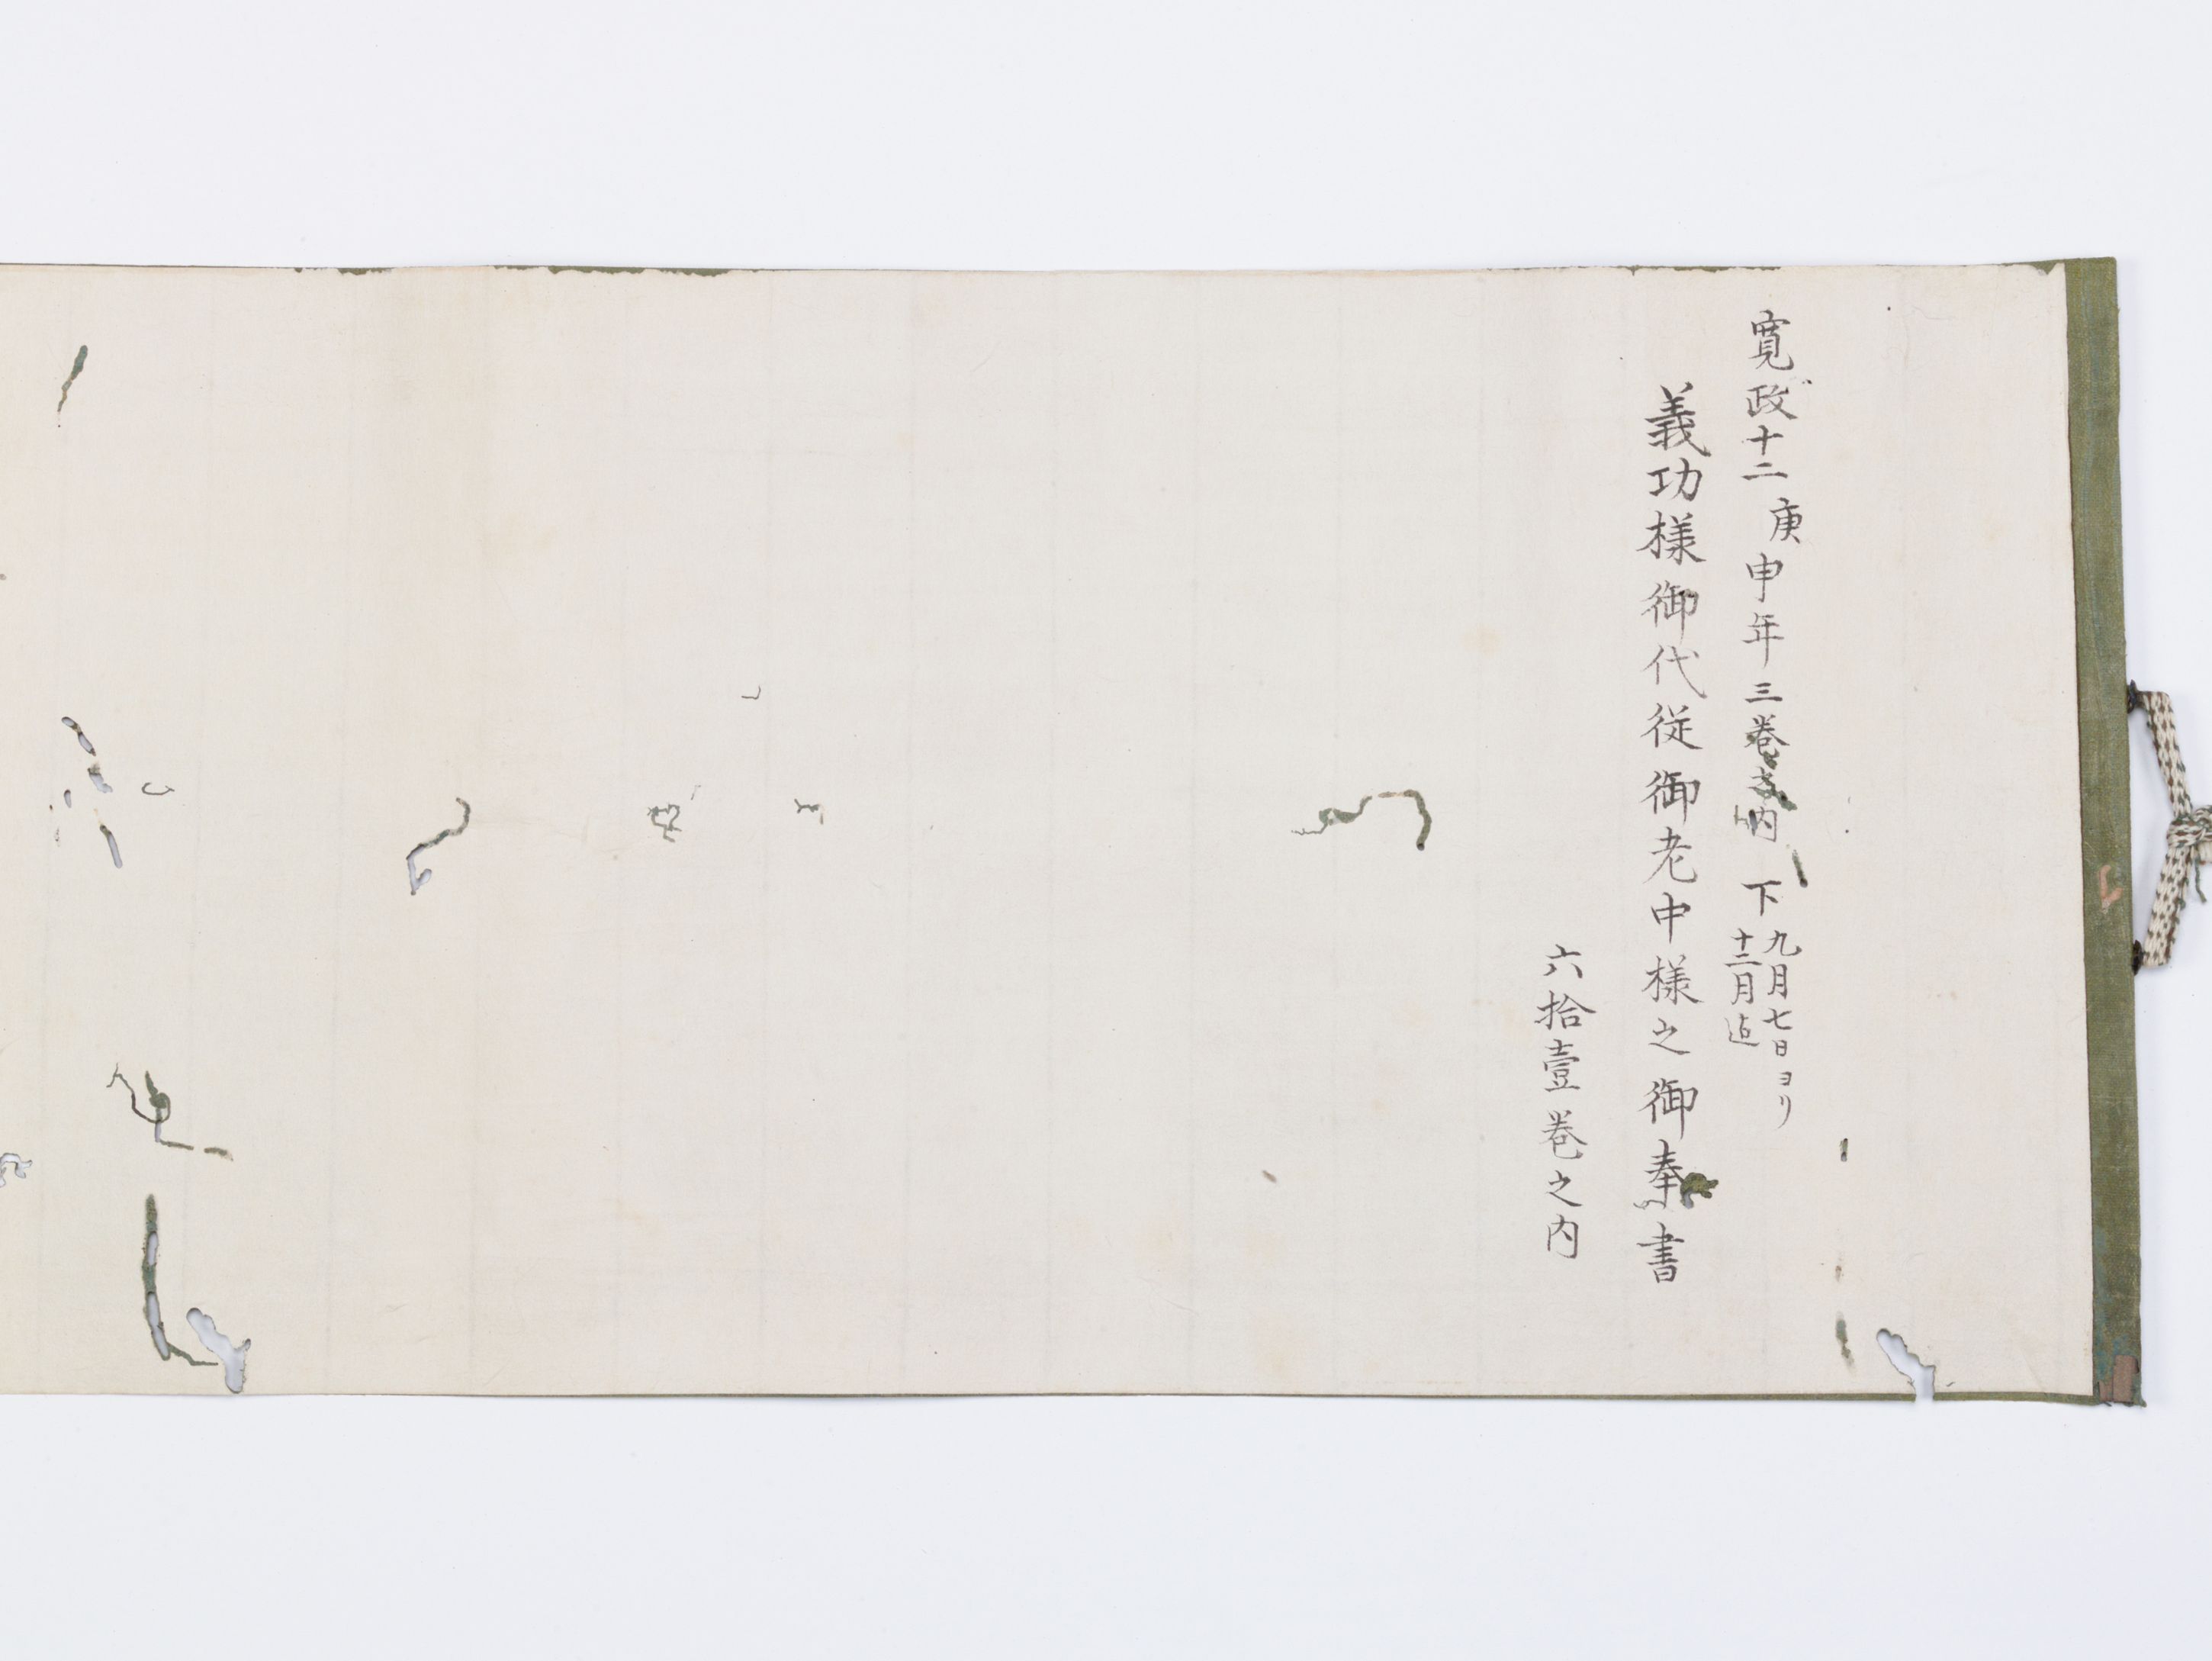 寛政十二庚申年三巻之内 下 九月七日ヨリ
十二月迄
義功様御代従御老中様之御奉書
六拾壹巻之内